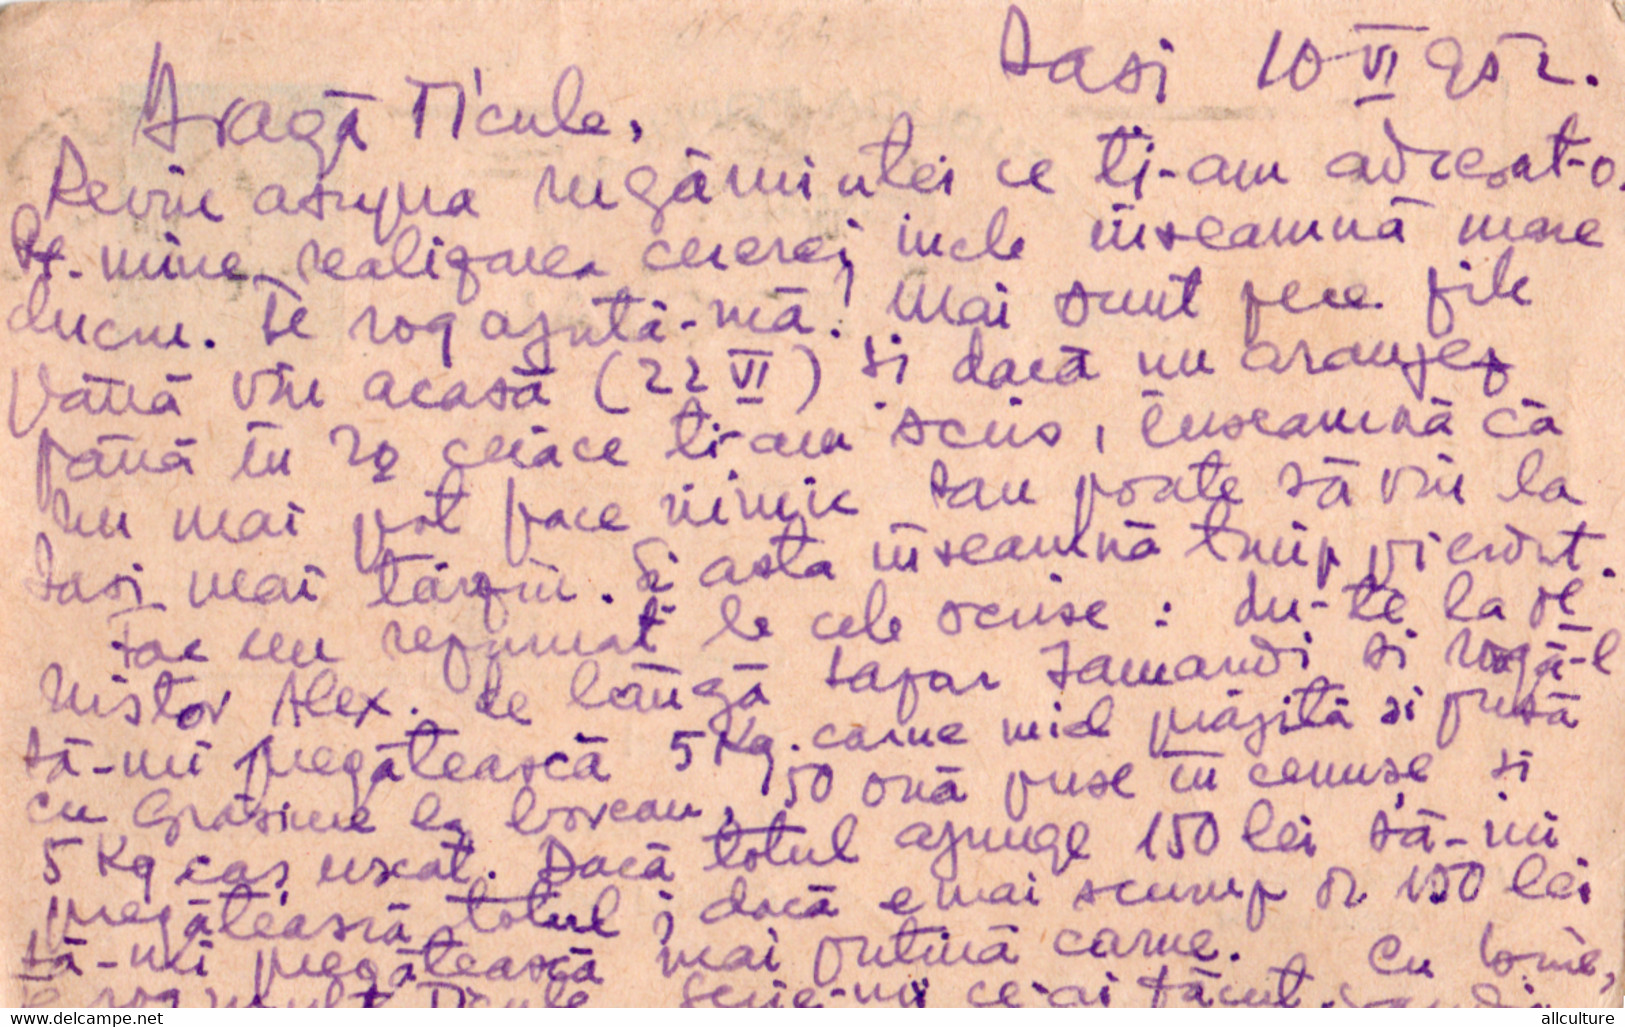 Iasi 10 VI 952.
Dragă Ticule,
Revin asupra rugăminței ce ți-am adresat-o.
Pt. mine realizarea cererei mele înseamnă mare
lucru. Te rog ajută-mă! Mai sunt zece zile
până vin acasă (22 VI) și dacă nu aranjez
până în 22 ceiace ți-am scris, înseamnă că
nu mai pot face nimic sau poate să vin la
Iasi mai târziu. Și asta înseamnă timp pierdut.
Fac un rezumat le cele scrise: du-te la
Nistor Alex. de lângă și rogă-l
să-mi pregătească 5 Kg. carne miel prăjită și pusă
cu grăsime la borcan, 50 ouă puse în cenușe și
5 Kg caș uscat. Dacă totul ajunge 150 lei să-mi
pregătească totul; dacă e mai scump de 150 lei
să-mi pregătească mai puțină carne. Cu bine,
Te rog mult Ticule scrie-mi ce-ai făcut.
www.delcampe.net
allculture